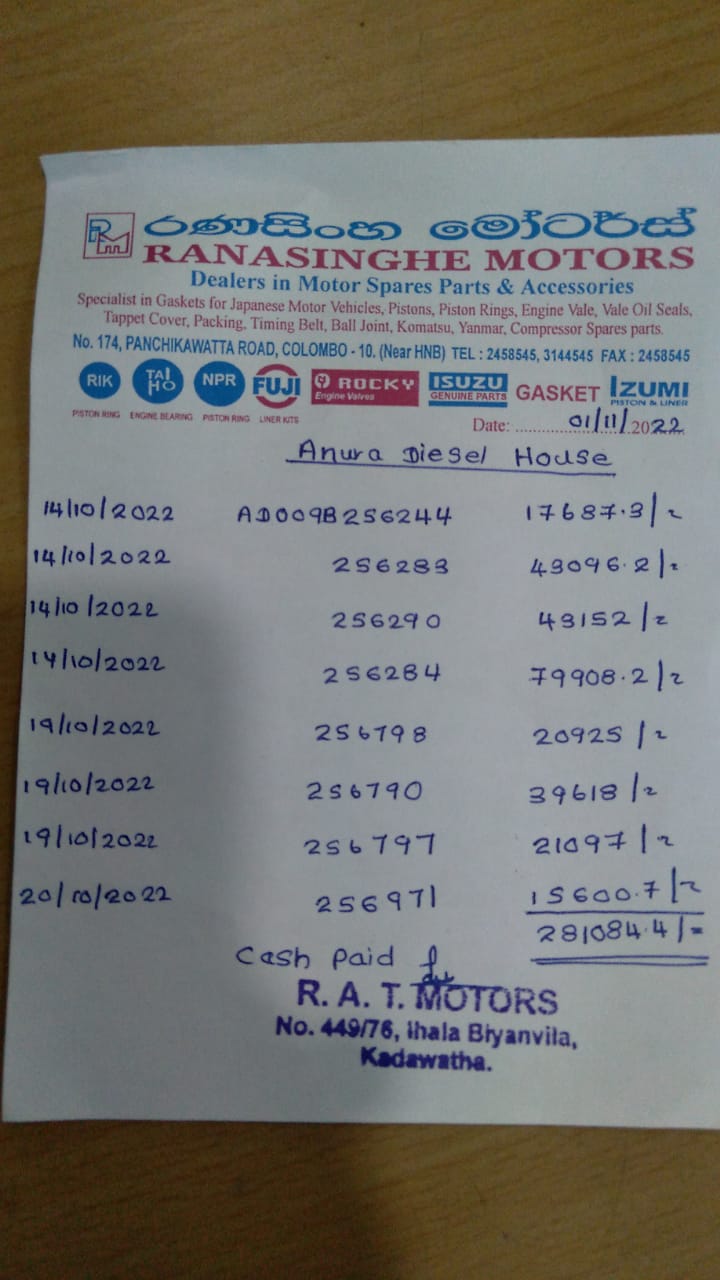 රණසිංහ මෝටර්ස්
RANASINGHE MOTORS
Dealers in Motor Spares Parts & Accessories
Specialist in Gaskets for Japanese Motor Vehicles, Pistons, Piston Rings, Engine Vale, Vale Oil Seals,
Tappet Cover, Packing, Timing Belt, Ball Joint, Komatsu, Yanmar, Compressor Spares parts.
No. 174, PANCHIKAWATTA ROAD, COLOMBO - 10. (Near HNB) TEL : 2458545, 3144545 FAX : 2458545
RIK TAIHO NPR FUJI ROCKY Engine Valves ISUZU GENUINE PARTS GASKET IZUMI PISTON & LINER
PISTON RING ENGINE BEARING PISTON RING LINER KITS
Date: ....................01/11/2022
Anura Diesel House
14/10/2022 AD009B256244 17687.3/=
14/10/2022 256283 43096.2/=
14/10/2022 256290 43152/=
14/10/2022 256284 79908.2/=
19/10/2022 256798 20925/=
19/10/2022 256790 39618/=
19/10/2022 256797 21097/=
20/10/2022 256971 15600.7/=
281084.4/=
Cash Paid
R. A. T. MOTORS
No. 449/76, Ihala Biyanvila,
Kadawatha.